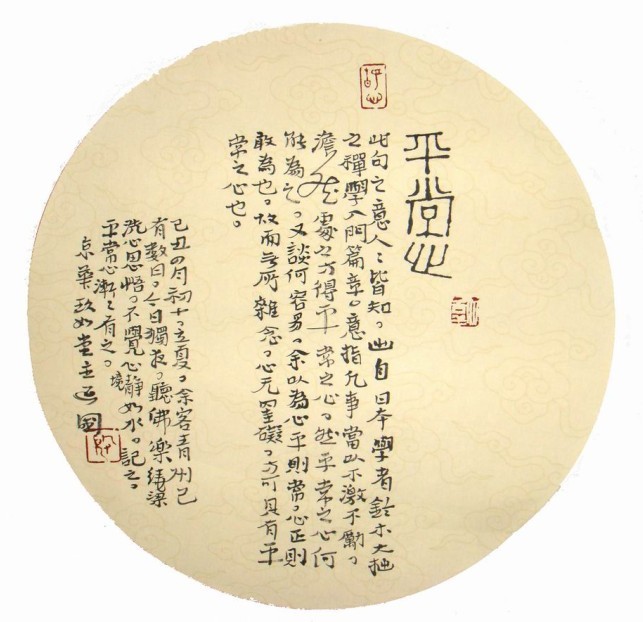 平常心
此句之意人々皆知。出自日本學者鈴木大拙
之禪學入門篇章。意指凡事當以不激不勵。
澹然處之方得平常之心。然平常之心何
能為之。又談何容易。余以為心平則常。心正則
敢為也。故而無所雜念。心无罣礙。方可具有平
常之心也。
己丑四月初十。立夏。余客青州已
有數日。今日獨夜。聽佛樂繞梁
洗心思悟。不覺心靜如水。記之。
平常心漸々有之。境
京華玖如堂主